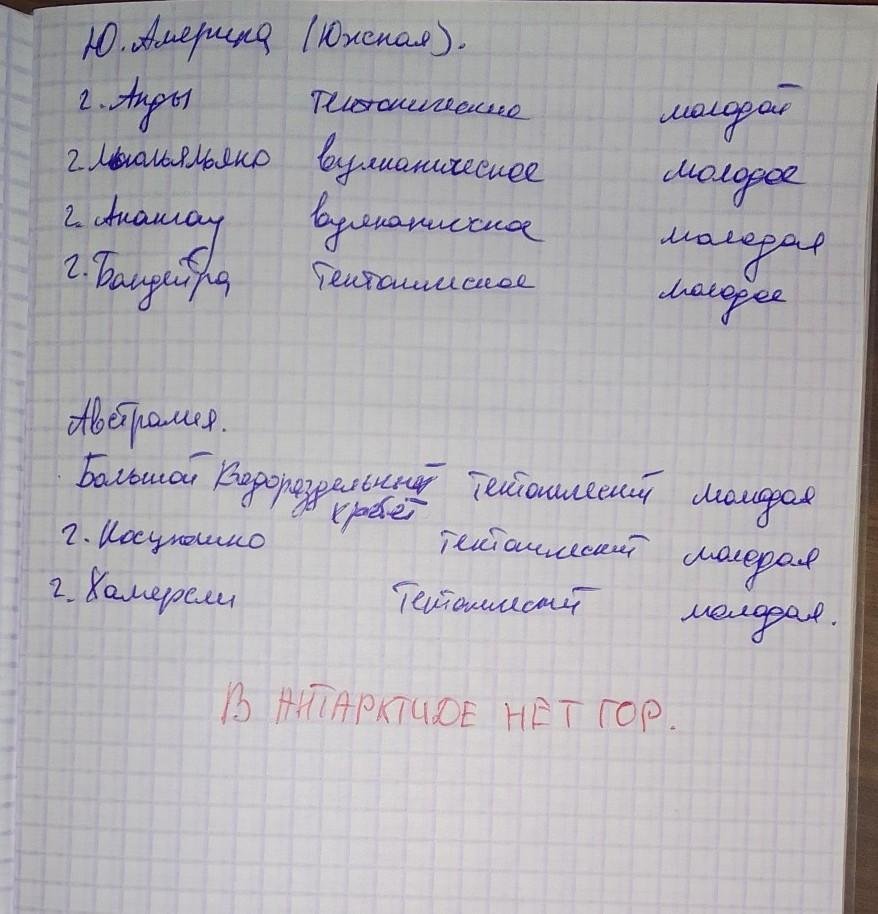 Ю. Америка (Южная).
г. Анды тектонические молодой
г. Льюльяльяко вулканическое молодое
г. вулканическое молодая
г. Бандейра тектоническое молодое
Австралия.
Большой Водораздельный хребет тектонический молодая
г. Косцюшко тектонический молодая
г. Хамерсли тектонический молодая.
В АНТАРКТИДЕ НЕТ ГОР.